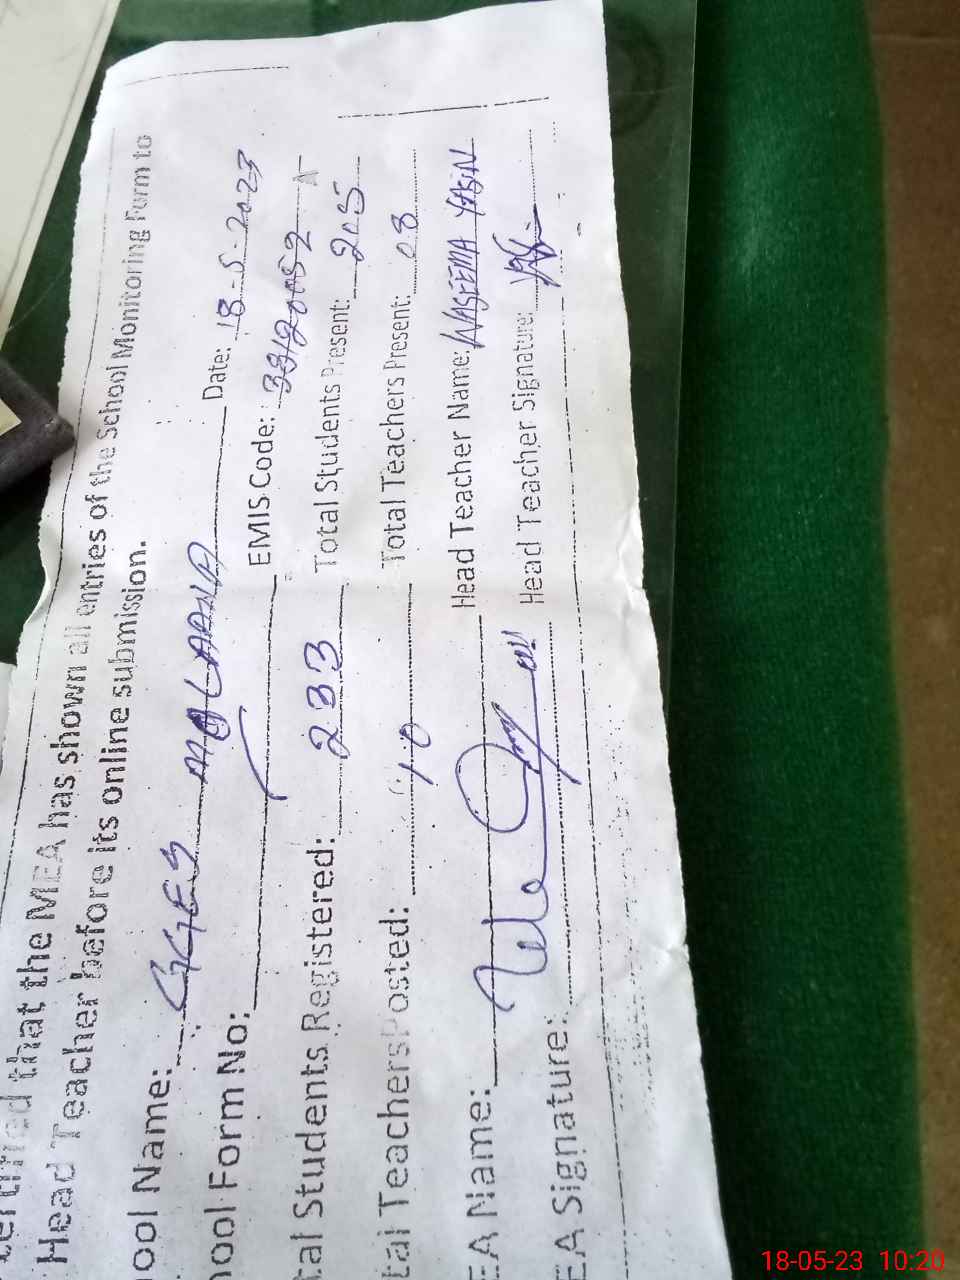 that the MEA has shown all entries of the School Monitoring Form to
Head Teacher before its online submission.
ool Name: GGES MALAANA Date: 18-5-2023
ool Form No: EMIS Code:
tal Students Registered: 233 Total Students Present: 205
tal Teachers Posted: 10 Total Teachers Present: 08
EA Name: Head Teacher Name: NASEEMA YASIN
EA Signature: Head Teacher Signature:
18-05-23 10:20